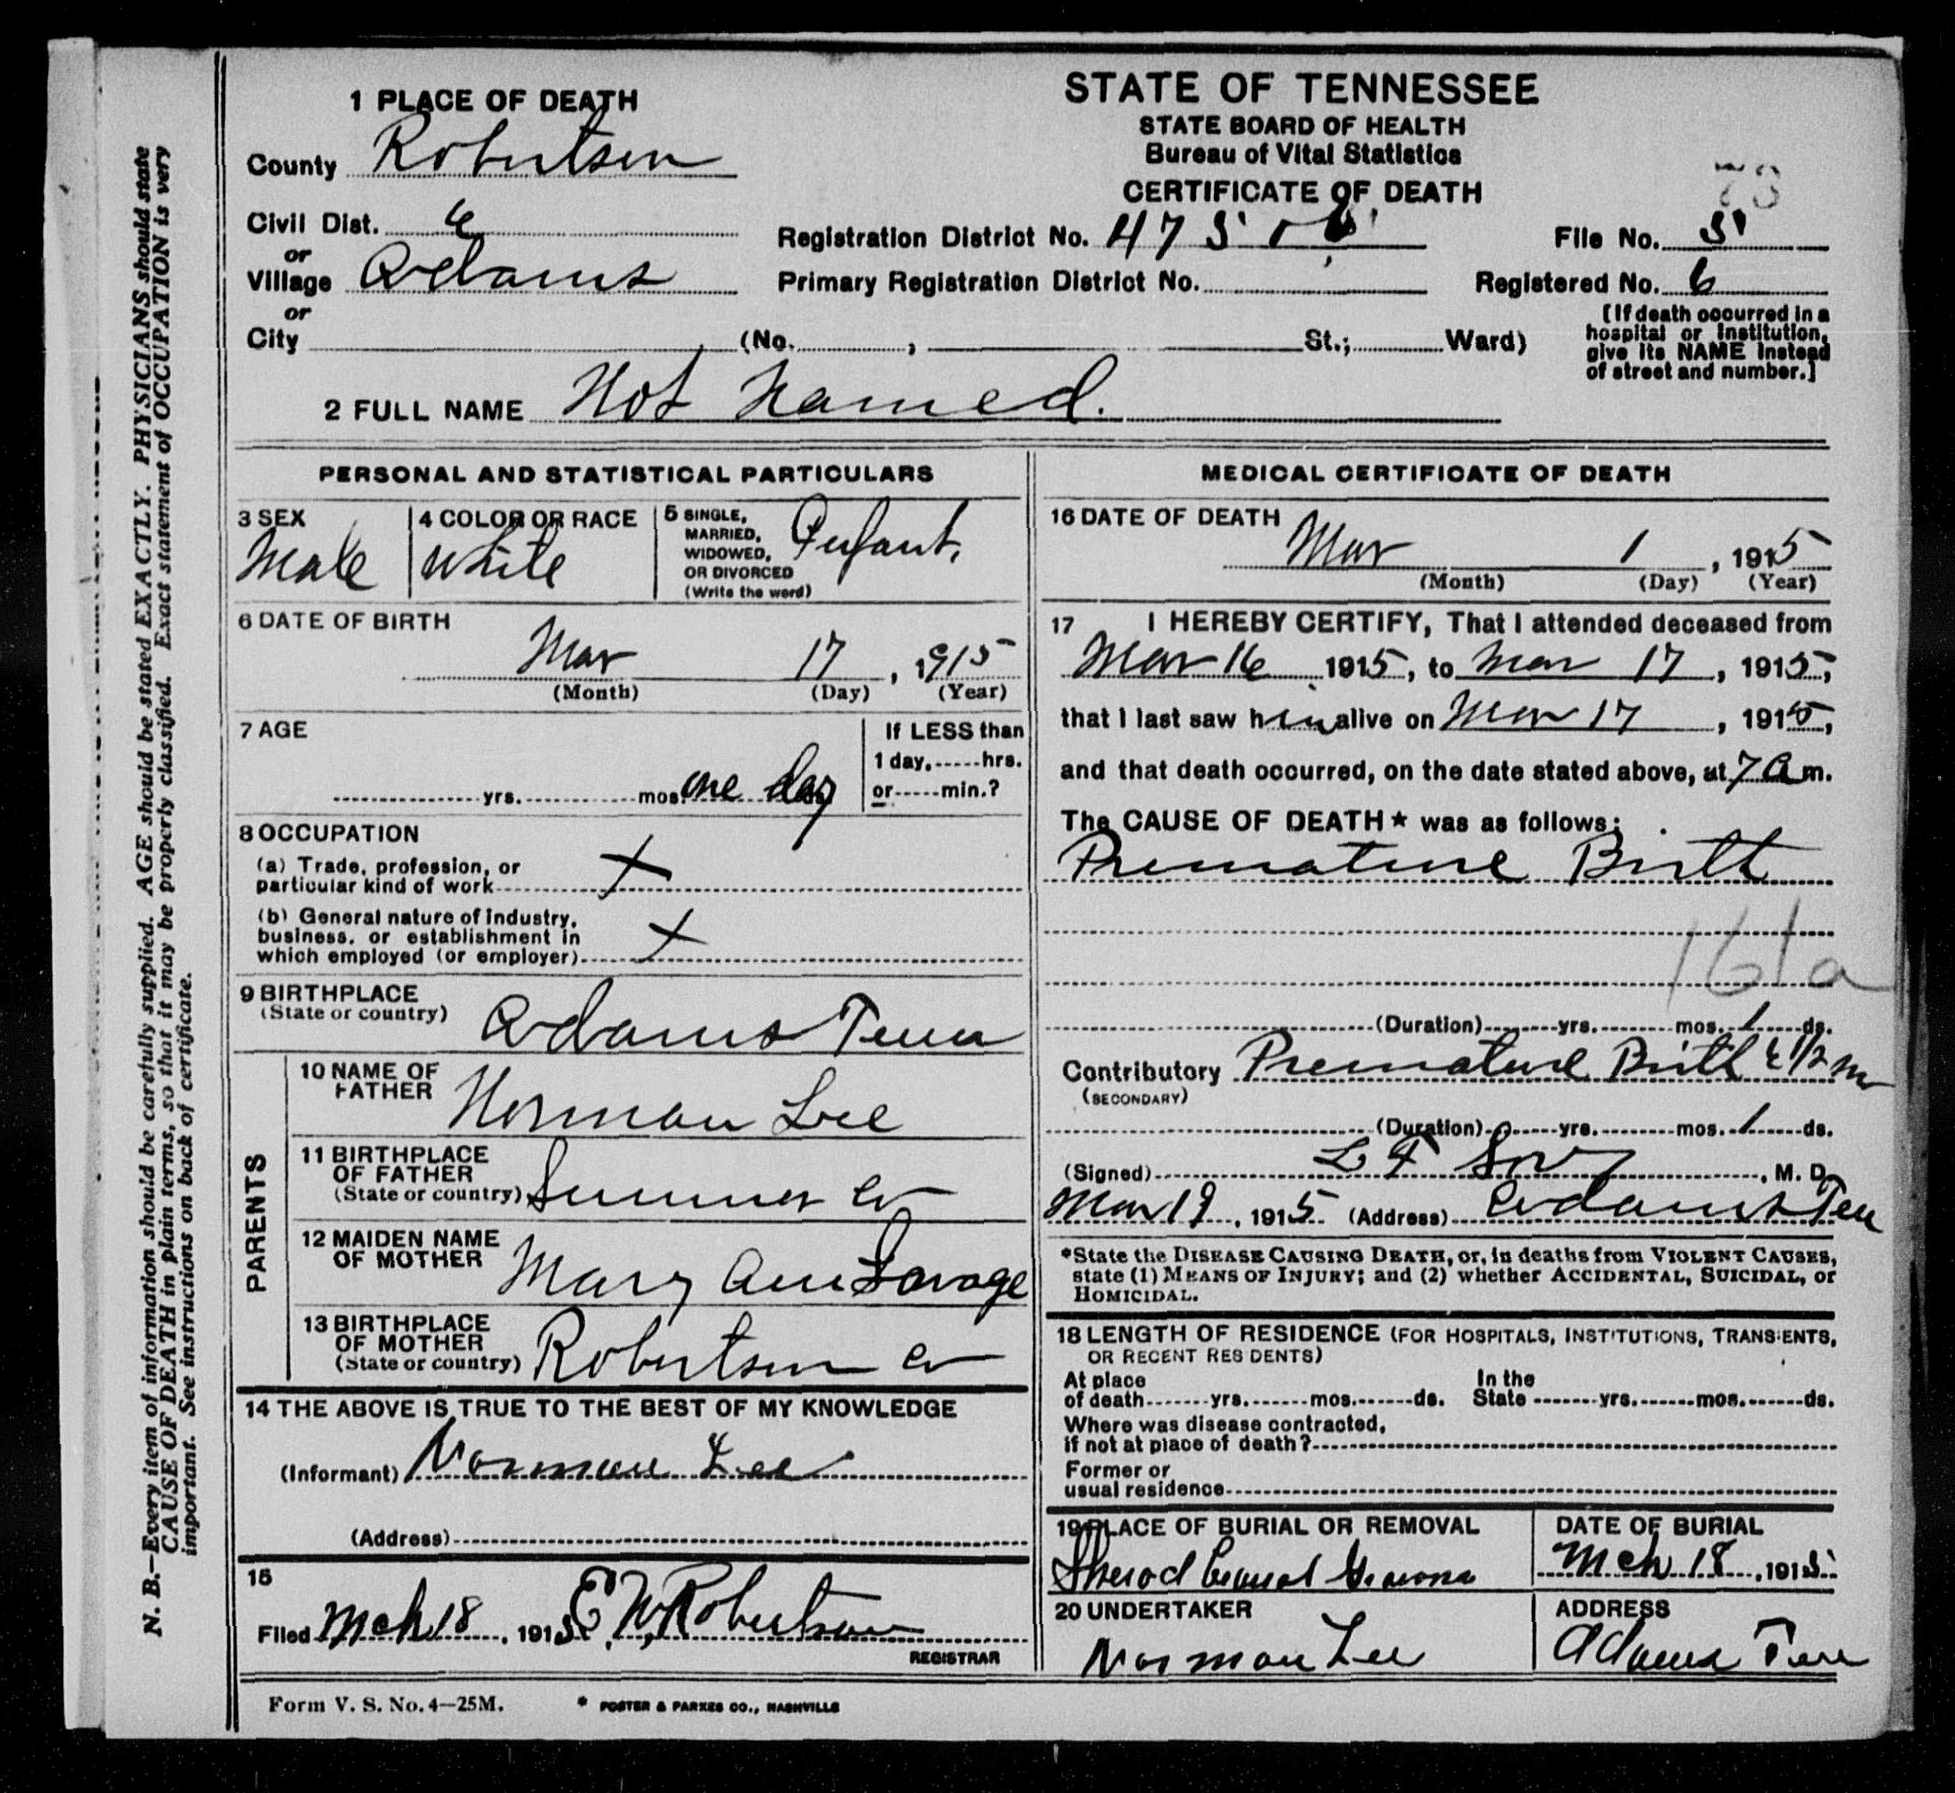 1 PLACE OF DEATH
County Robertson
Civil Dist. 6
or
Village Adams
or
City (No. , St.; Ward)
STATE OF TENNESSEE
STATE BOARD OF HEALTH
Bureau of Vital Statistics
CERTIFICATE OF DEATH
73
Registration District No. 475
File No. 51
Primary Registration District No.
Registered No. 6
[If death occurred in a
hospital or Institution,
give its NAME instead
of street and number.]
2 FULL NAME Not Named.
PERSONAL AND STATISTICAL PARTICULARS
3 SEX
Male
4 COLOR OR RACE
White
5 SINGLE,
MARRIED,
WIDOWED,
OR DIVORCED
(Write the word)
Infant.
6 DATE OF BIRTH
Mar 17, 1915
(Month) (Day) (Year)
7 AGE
yrs. mos. one day
If LESS than
1 day, hrs.
or min.?
8 OCCUPATION
(a) Trade, profession, or
particular kind of work X
(b) General nature of industry,
business, or establishment in
which employed (or employer) X
9 BIRTHPLACE
(State or country) Adams Tenn
PARENTS
10 NAME OF
FATHER Norman Lee
11 BIRTHPLACE
OF FATHER
(State or country) Sumner Co
12 MAIDEN NAME
OF MOTHER Mary Ann Savage
13 BIRTHPLACE
OF MOTHER
(State or country) Robertson Co
14 THE ABOVE IS TRUE TO THE BEST OF MY KNOWLEDGE
(Informant) Norman Lee
(Address)
15
Filed Mch 18, 1915 E. W. Robertson
REGISTRAR
MEDICAL CERTIFICATE OF DEATH
16 DATE OF DEATH
Mar 1, 1915
(Month) (Day) (Year)
17 I HEREBY CERTIFY, That I attended deceased from
Mar 16 1915, to Mar 17, 1915,
that I last saw him alive on Mar 17, 1915,
and that death occurred, on the date stated above, at 7 a m.
The CAUSE OF DEATH* was as follows:
Premature Birth
161a
(Duration) yrs. mos. 1 ds.
Contributory Premature Birth 6 1/2 m
(SECONDARY)
(Duration) yrs. mos. 1 ds.
(Signed) L F, M. D.
Mar 19, 1915 (Address) Adams Ten
*State the DISEASE CAUSING DEATH, or, in deaths from VIOLENT CAUSES,
state (1) MEANS OF INJURY; and (2) whether ACCIDENTAL, SUICIDAL, or
HOMICIDAL.
18 LENGTH OF RESIDENCE (FOR HOSPITALS, INSTITUTIONS, TRANSIENTS,
OR RECENT RESIDENTS)
At place
of death yrs. mos. ds.
In the
State yrs. mos. ds.
Where was disease contracted,
if not at place of death?
Former or
usual residence
19 PLACE OF BURIAL OR REMOVAL
Sherod
DATE OF BURIAL
Mch 18, 1915
20 UNDERTAKER
Norman Lee
ADDRESS
Adams Tenn
Form V. S. No. 4—25M.
* FOSTER & PARKES CO., NASHVILLE
N. B.—Every item of information should be carefully supplied. AGE should be stated EXACTLY. PHYSICIANS should state
CAUSE OF DEATH in plain terms, so that it may be properly classified. Exact statement of OCCUPATION is very
important. See instructions on back of certificate.